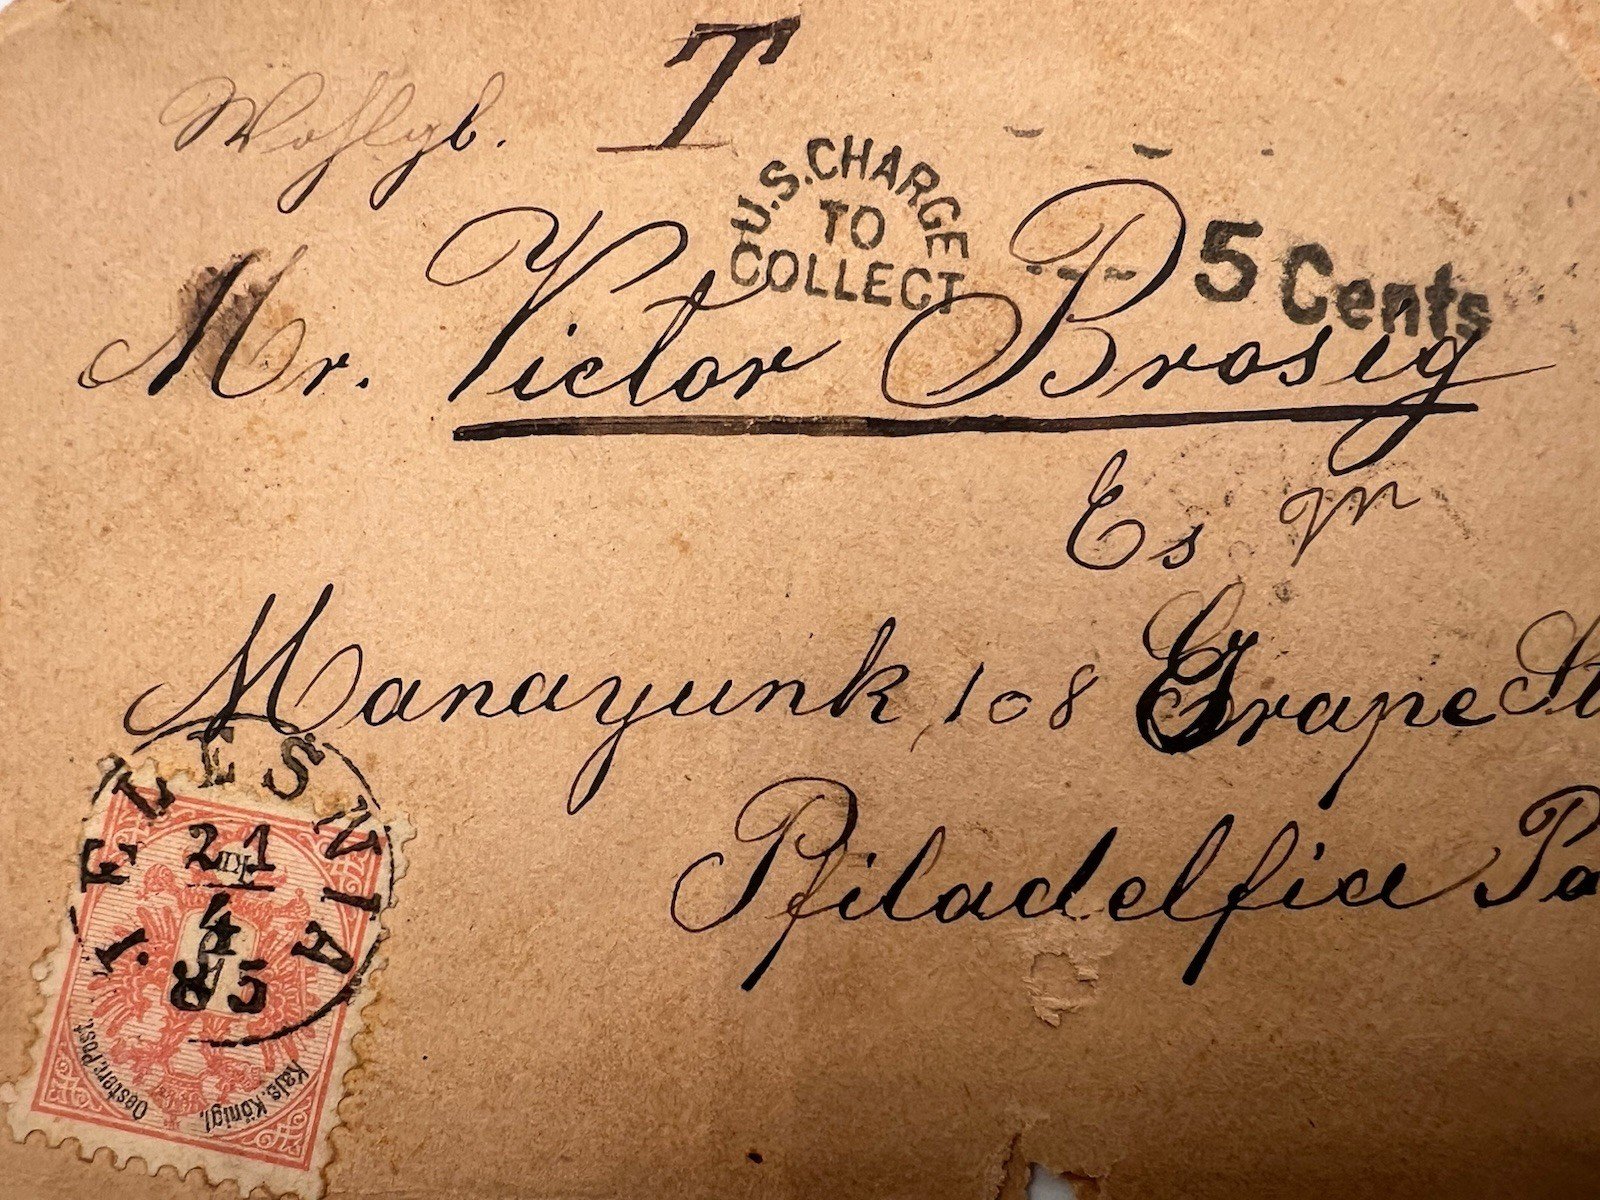 T
Wohlgb.
U.S. CHARGE
TO
COLLECT
5 Cents
Mr. Victor Brosig
Es
Manayunk, 108 Grape St
Philadelfia Pa
TELESNIA
21
4
85
Kais. Königl. Oesterr. Post.